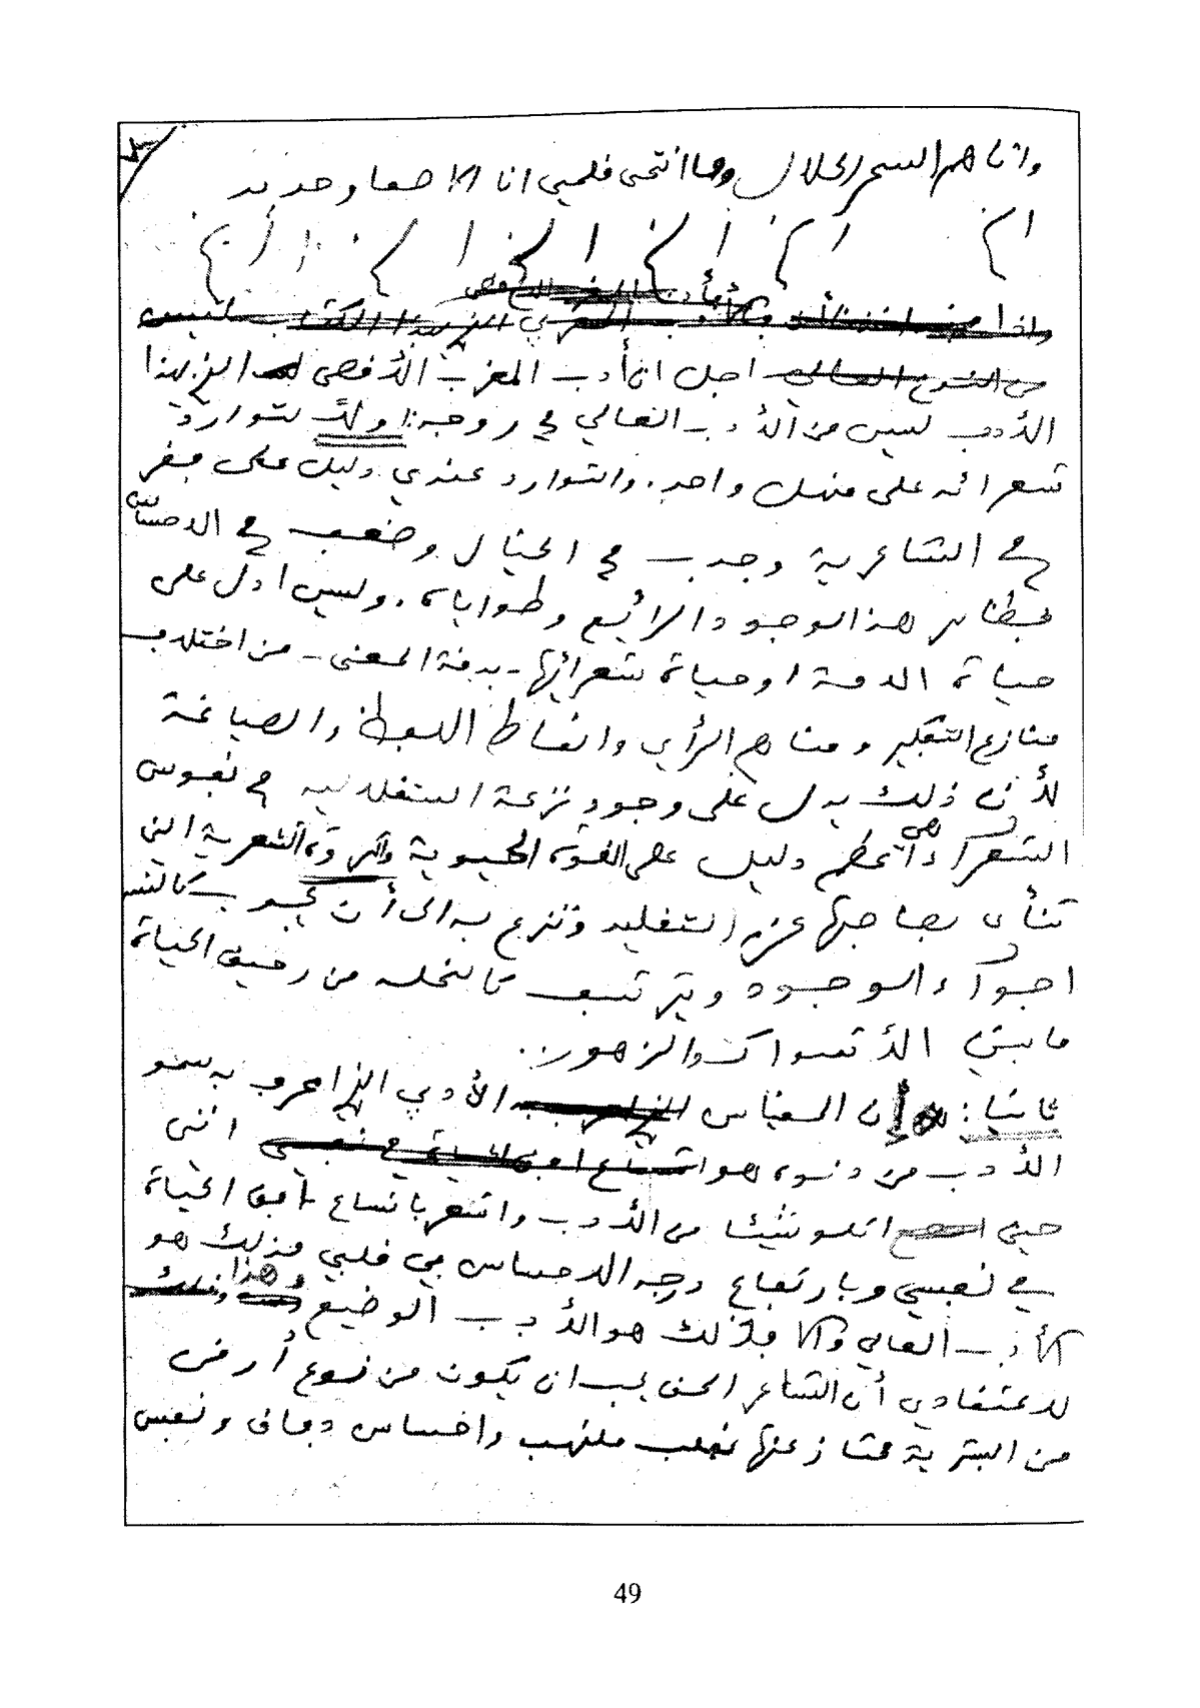 واتاهم السحر الحلال وما انتحى قلمي انا الا صفا وحديد
اخ اخ اخ الخ الخ الخ
اجل ان أدب المغرب الأقصى الزيهذا
الأدب ليس من الأدب العالي في روحه: اولاً لتوارد
شعرائه على منهل واحد. والتوارد عندي دليل على فقر
في الشاعرية وجدب في الخيال وضعف في الاحساس
بمظاهر هذا الوجود الرائع وطواياه. وليس ادل على
حياة الامة او حياة شعرائها - بدقة المعنى - من اختلاف
منازع التفكير ومناهج الرأي وانماط اللفظ والصياغة
لأن ذلك يدل على وجود نزعة استقلالية في نفوس
الشعراء هي أعظم دليل على القوة الحيوية والثروة الشعرية التي
تنأى بصاحبها عن التقليد وتنزع به الى أن يجوب كالنسر
اجواء الوجود ويرتشف كالنحلة من رحيق الحياة
ما بين الأشواك والزهور..
ثانيا: إن المقياس الأدبي الذي اعرف به سمو
الأدب من دنوه هو انني
حين اتلو شيئا من الأدب واشعر باتساع افق الحياة
في نفسي وبارتفاع درجه الاحساس في قلبي فذلك هو
الأدب العالي والا فذلك هو الأدب الوضيع وهذا
لاعتقادي أن الشاعر الحق يجب ان يكون من نوع أرقى
من البشرية ممتاز عنها بقلب ملتهب واحساس دافق ونفس
49